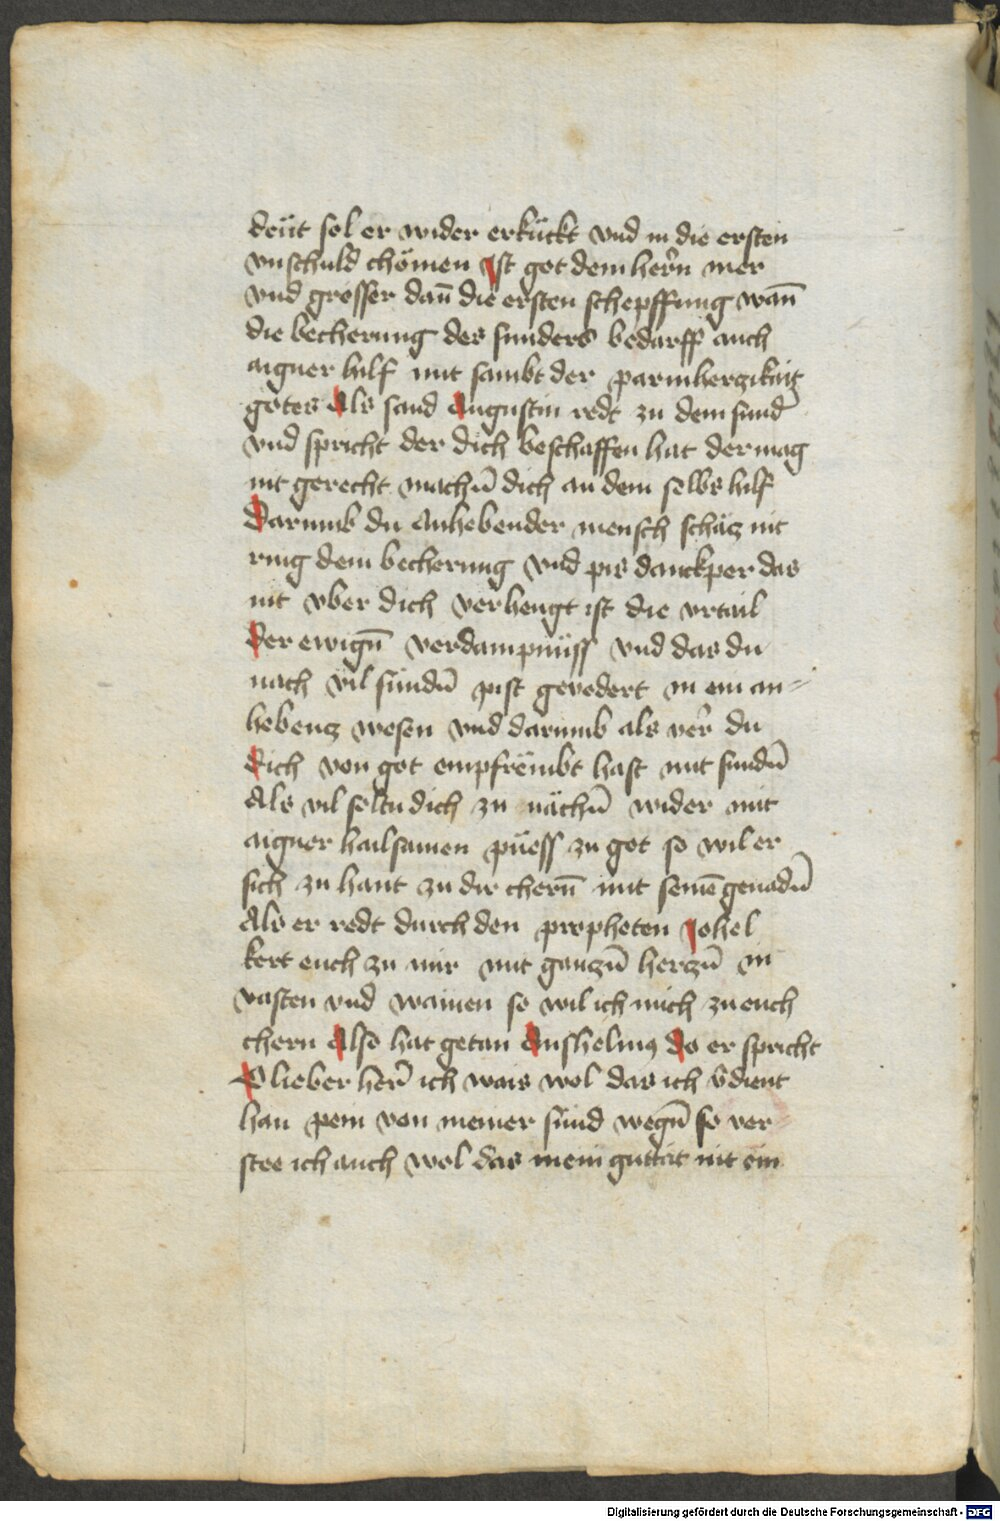 deüt sol er wider erkükt vnd in die ersten
vnschuld chömen Ist got dem her̄n mer
vnd grosser dan̄ die ersten schepffung wan̄
die becherung des sunders bedarff auch
aigner hilf mit sambt der parmherzikait
gotes Als sand Augustin redt zu dem sund̄
vnd spricht der dich beschaffen hat der mag
nit gerecht machn̄ dich an dem selbs hilf
Darumb du anhebender mensch schäcz nit
ring dem becherung vnd pis danckper das
nit vber dich verhengt ist die vrtail
der ewign̄ verdampnüss vnd das du
nach vil sündn̄ pist gevodert in ein an⸗
hebencz wesen vnd darumb als ver̄ du
dich von got empfrömbt hast mit sundn̄
Als vil soltu dich zu nächn̄ wider mit
aigner hailsamen püess zu got so wil er
sich zu hant zu dir chern̄ mit seinē genadn̄
Als er redt durch den propheten Johel
kert euch zu mir mit ganczn̄ herczn̄ in
vasten vnd wainen so wil ich mich zu euch
chern Also hat getan Anshelmꝰ Do er spricht
O lieber her̄ ich wais wol das ich v̄dient
han pein von meiner sünd wegn̄ so ver
stee ich auch wol das mein guttät nit ein
Digitalisierung gefördert durch die Deutsche Forschungsgemeinschaft - DFG